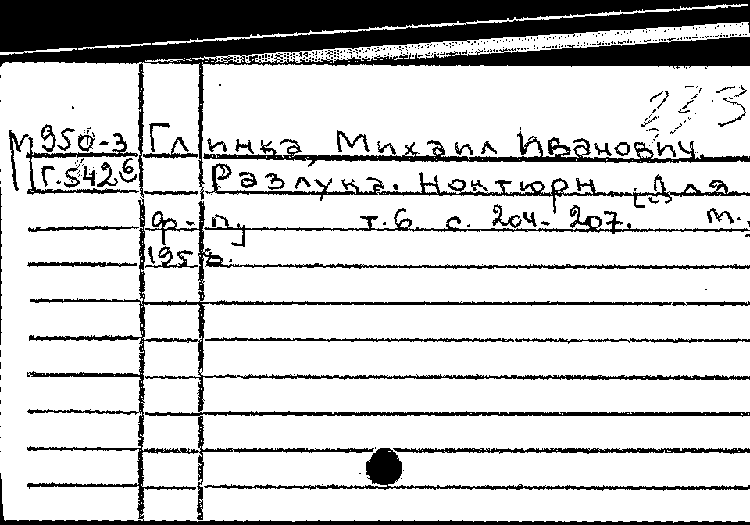 233
М950-3 Глинка, Михаил Иванович.
Г.542б Разлука. Ноктюрн для
ф-п, т.6. с. 204-207. М.,
1958.